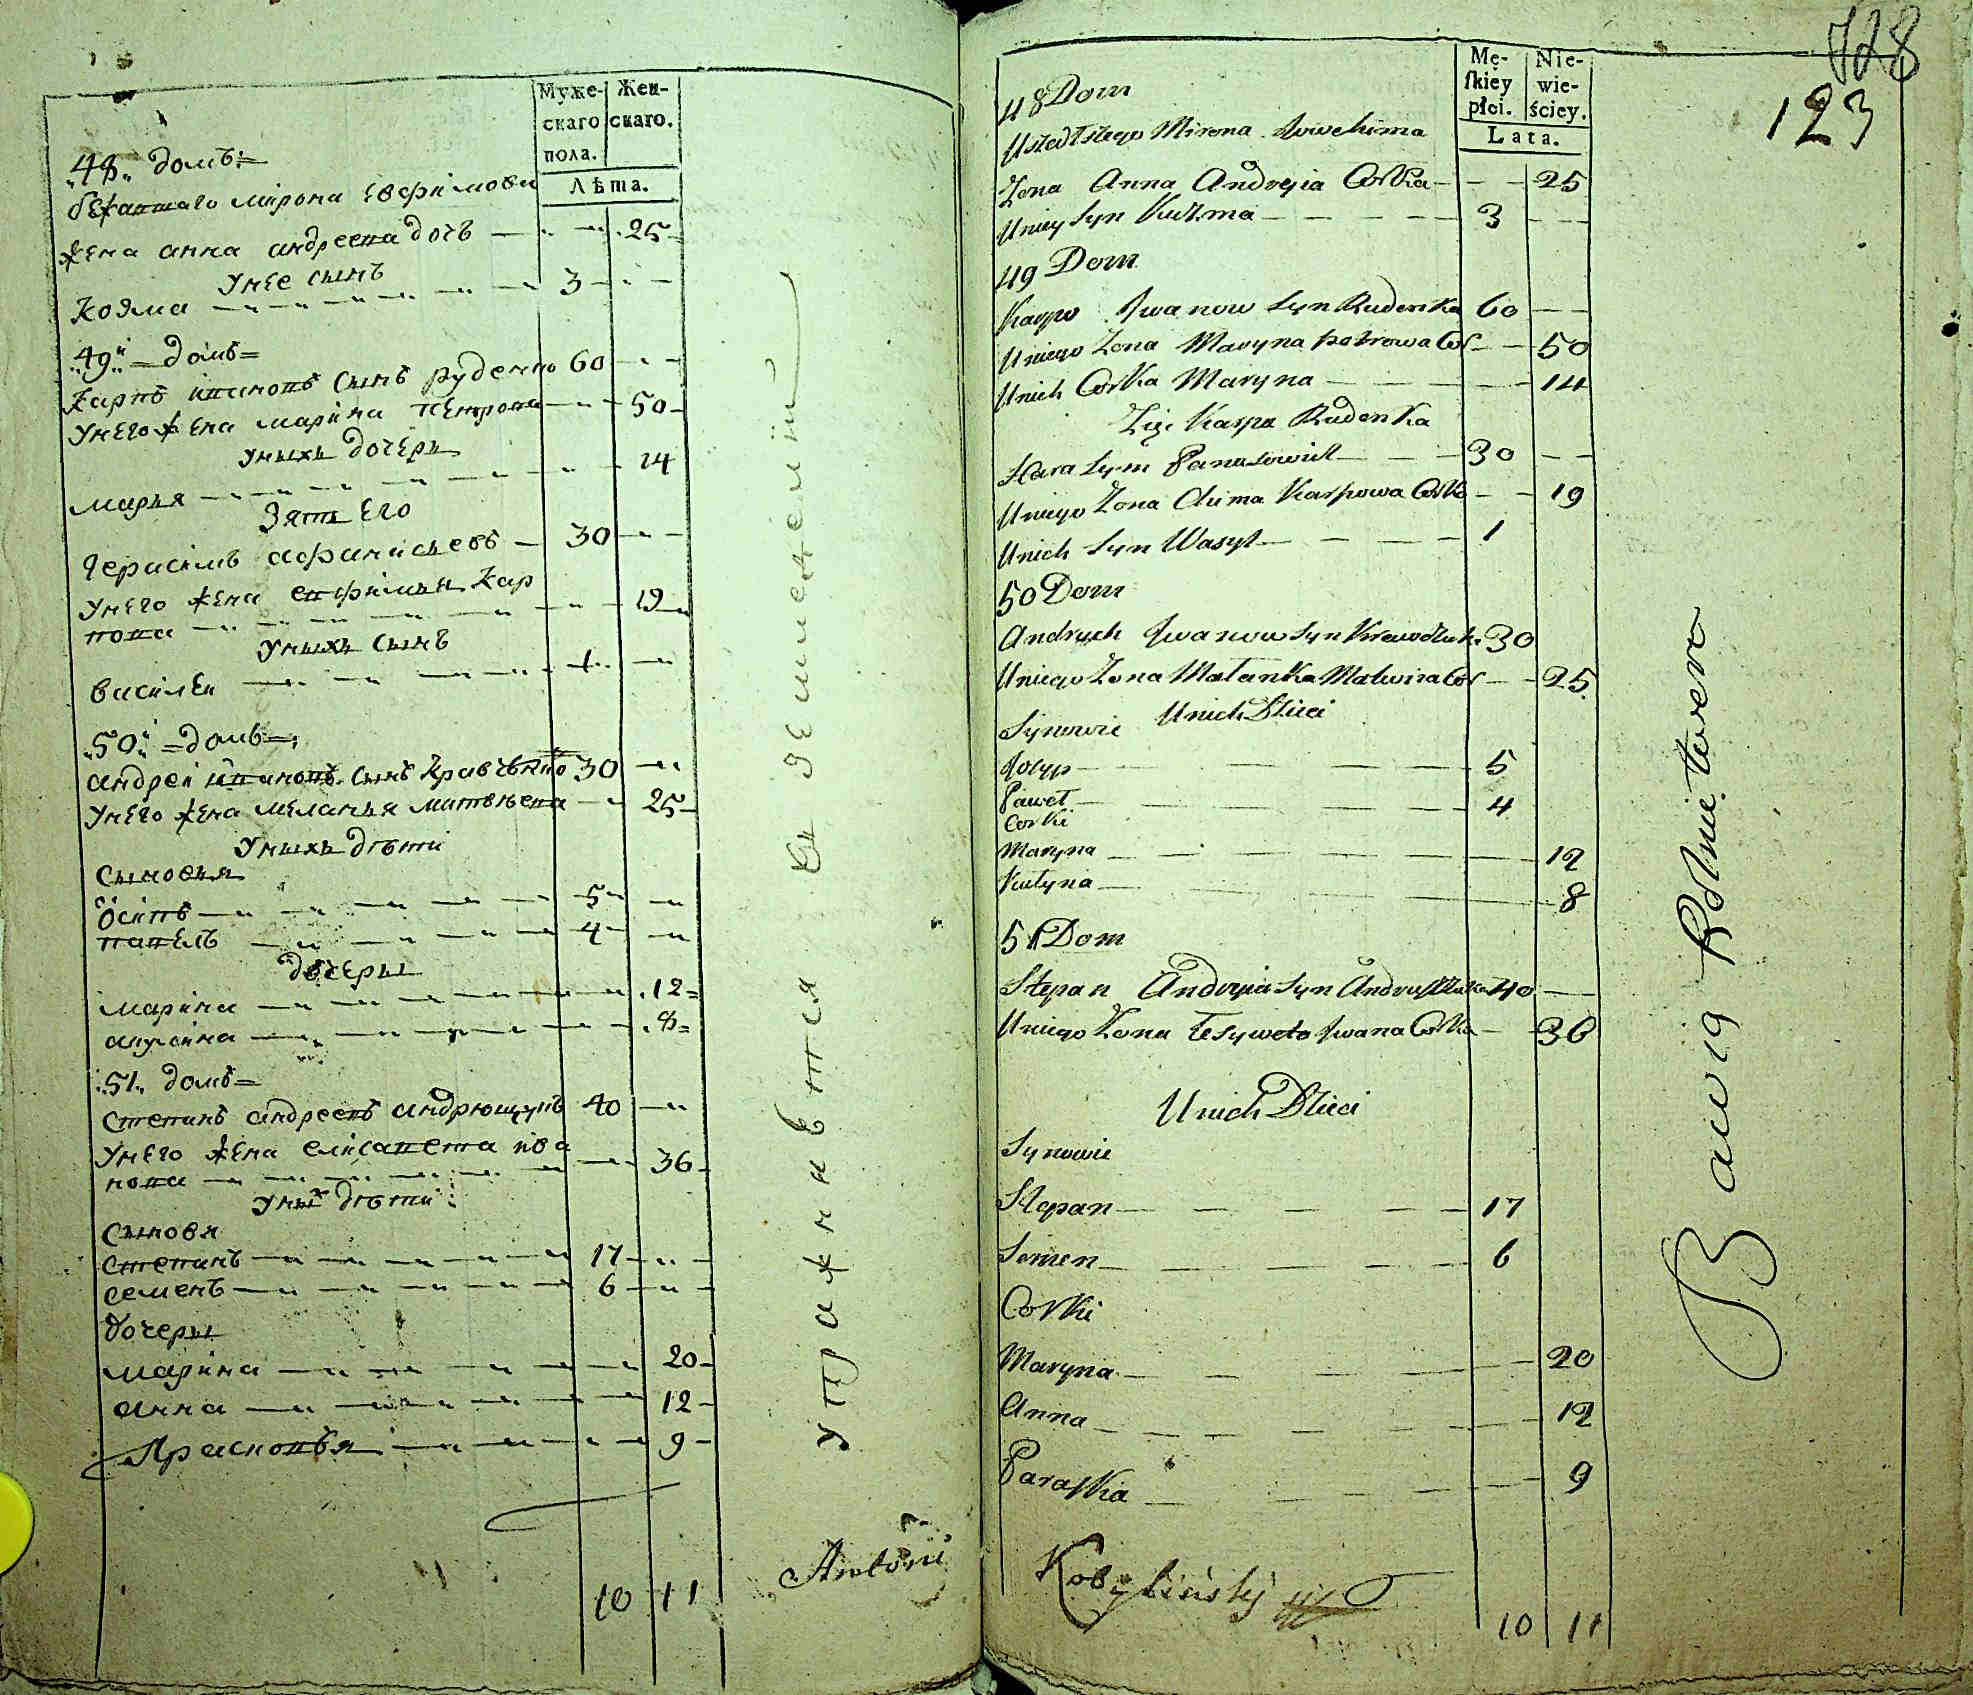 Муже-
скаго
пола.
Жен-
скаго.
Лѣта.
„48„ домъ:=
бежавшаго мирона Евфимова
жена анна андреева дочь 25
У нее сынъ
Козма 3
„49„ домъ=
Карпъ ивановъ сынъ руденко 60
У него жена марина петрова 50
У нихъ дочерь
марья 14
Зять Его
Герасимъ афанасьевъ 30
У него жена евфимья Кар
пова 19
У нихъ сынъ
василеи 1
„50„ =домъ=
андреи ивановъ сынъ Кравченко 30
У него жена меланья матвѣева 25
У нихъ дѣти
Сыновья
Осипъ 5
павелъ 4
дочеры
марина 12=
8=
„51„ домъ=
Степанъ андреевъ андрющукъ 40
У него жена елисавета ива
нова 36
У них дѣти
Сыновя
Степанъ 17
Семенъ 6
дочеры
марина 20
анна 12
Прасковья 9
10 11
Antoni
уважнавтся
728
123
Mę-
skiey
płci.
Nie-
wie-
ściey.
Lata.
48 Dom
Mirona Jowchima
Zona Anna Andreja Corka 25
U niey Syn Kuzma 3
49 Dom
Karpo Jwanow Syn Rudenko 60
U niego Zona Maryna Petrowa Cor 50
U nich Corka Maryna 14
Zięć Karpa Rudenka
Syn Panasowick 30
U niego Zona Chima Karpowa Corka 19
U nich Syn Wasyl 1
50 Dom
Andruch Jwanow Syn 30
U niego Zona Malanka Matwiia Cor 25
U nich Dzieci
Synowie
Josyp 5
Paweł 4
Corki
Maryna 12
8
51 Dom
Stepan Andreja Syn 40
U niego Zona Jwana Corka 36
U nich Dzieci
Synowie
Stepan 17
Semen 6
Corki
Maryna 20
Anna 12
Paraska 9
Kobyliński
10 11